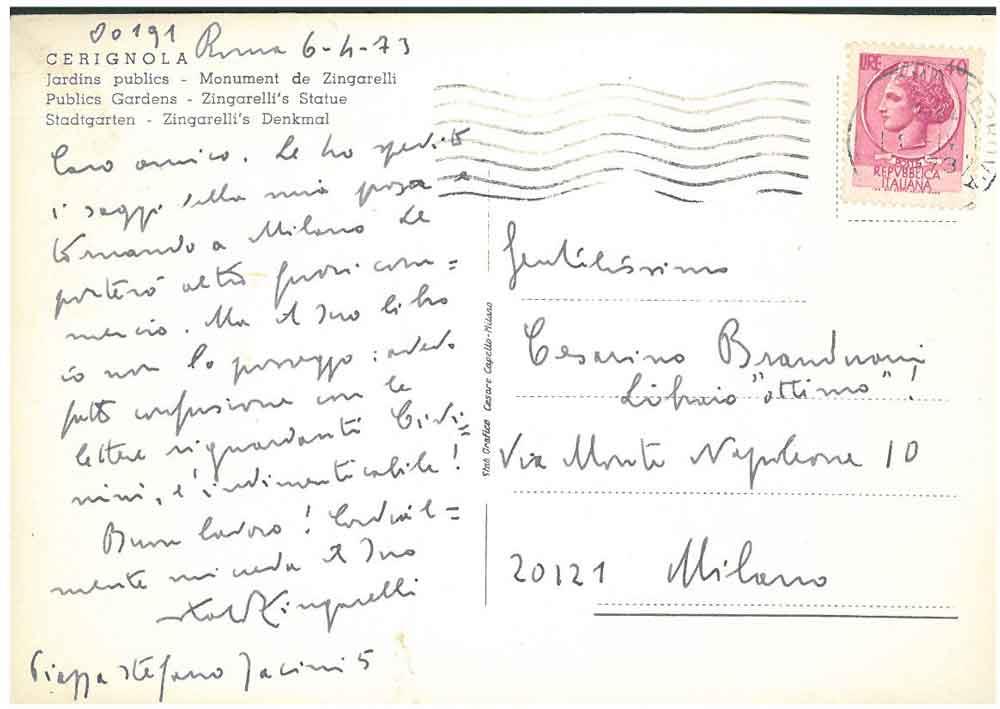 00191 Roma 6-4-73
CERIGNOLA
Jardins publics - Monument de Zingarelli
Publics Gardens - Zingarelli's Statue
Stadtgarten - Zingarelli's Denkmal
Caro amico. Le ho spedito
i saggi sulla mia poesia e
tornando a Milano Le
porterò altro fuori com=
mercio. Ma il Suo libro
io non lo posseggo: avevo
fatto confusione con le
lettere riguardanti
mini, l'indimenticabile!
Buon lavoro! Cordial=
mente mi creda il Suo
Italo Zingarelli
Piazza Stefano Jacini 5
Stab. Grafico Cesare Capello-Milano
LIRE 40
POSTE
REPVBBLICA
ITALIANA
Gentilissimo
Cesarino Branduani
Libraio "ottimo"!
Via Monte Napoleone 10
20121 Milano